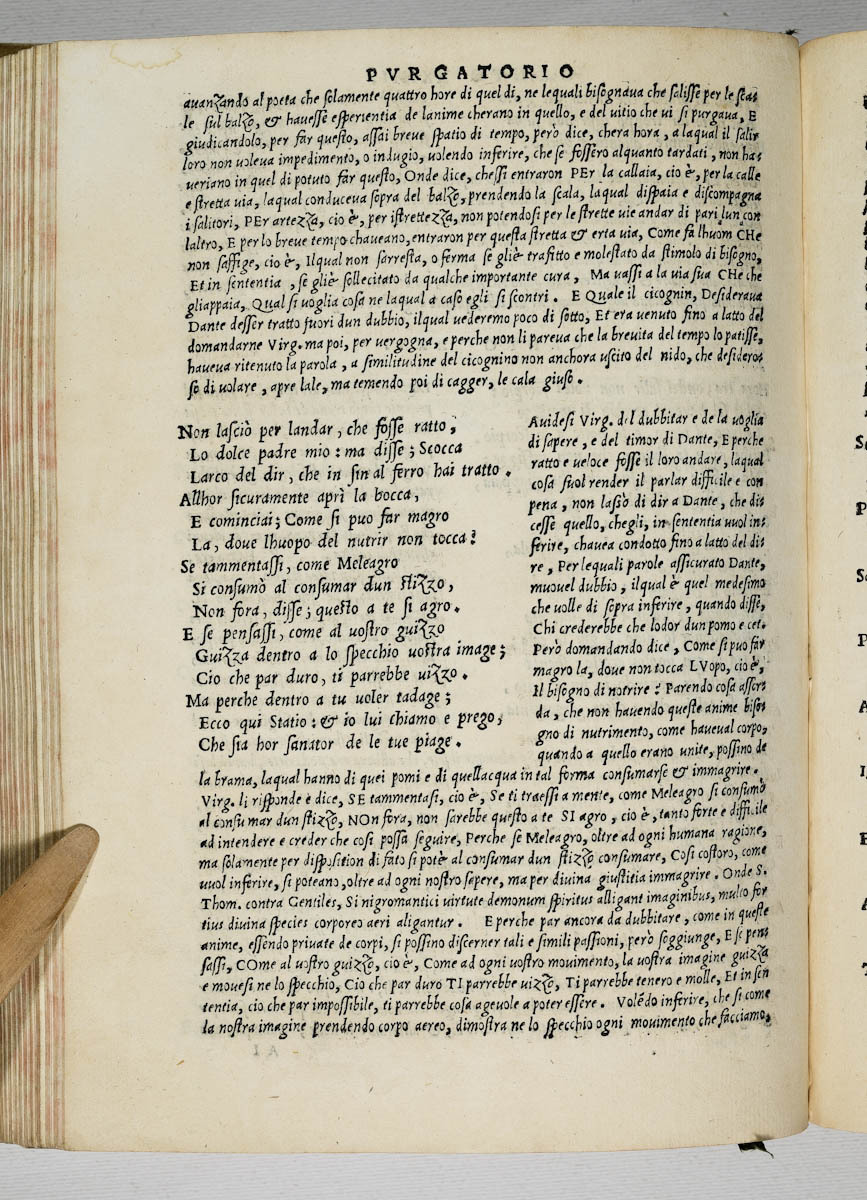 PVRGATORIO
auanzando al poeta che solamente quattro hore di quel di, ne lequali bisognaua che salisse per le scai
le sul balzo, & hauesse esperientia de lanime cherano in quello, e del uitio che ui si purgaua, E
giudicandolo, per far questo, assai breue spatio di tempo, però dice, chera hora, a laqual il salir
loro non uoleua impedimento, o indugio, uolendo inferire, che se fossero alquanto tardati, non ha‐
ueriano in quel di potuto far questo, Onde dice, chessi entraron PEr la callaia, cio è, per la calle
e stretta uia, laqual conduceua sopra del balzo, prendendo la scala, laqual dispaia e discompagna
i salitori, PEr artezza, cio è, per istrettezza, non potendosi per le strette uie andar di pari lun con
laltro, E per lo breue tempo chaueano, entraron per questa stretta & erta uia, Come fa lhuom CHe
non saffige, cio è, Ilqual non sarresta, o ferma se gliè trafitto e molestato da stimolo di bisogno,
Et in sententia, se gliè sollecitato da qualche importante cura, Ma uassi a la uia sua CHe che
gliappaia, Qual si uoglia cosa ne laqual a caso egli si scontri. E Quale il cicognin, Desideraua
Dante desser tratto fuori dun dubbio, ilqual uederemo poco di sotto, Et era uenuto fino a latto del
domandarne Virg. ma poi, per uergogna, e perche non li pareua che la breuita del tempo lo patisse,
haueua ritenuto la parola, a similitudine del cicognino non anchora uscito del nido, che desidero‐
so di uolare, apre lale, ma temendo poi di cagger, le cala giuso.
Non lasciò per landar, che fosse ratto,
Lo dolce padre mio: ma disse; Scocca
Larco del dir, che in fin al ferro hai tratto.
Allhor sicuramente aprì la bocca,
E cominciai; Come si puo far magro
La, doue lhuopo del nutrir non tocca?
Se tammentassi, come Meleagro
Si consumò al consumar dun stizzo,
Non fora, disse; questo a te si agro.
E se pensassi, come al uostro guizzo
Guizza dentro a lo specchio uostra image;
Cio che par duro, ti parrebbe uizzo.
Ma perche dentro a tu uoler tadage;
Ecco qui Statio: & io lui chiamo e prego,
Che sia hor sanator de le tue piage.
Auidesi Virg. del dubbitar e de la uoglia
di sapere, e del timor di Dante, E perche
ratto e ueloce fosse il loro andare, laqual
cosa suol render il parlar difficile e con
pena, non lasciò di dir a Dante, che di‐
cesse quello, chegli, in sententia uuol in‐
ferire, chauea condotto fino a latto del di‐
re, Per lequali parole assicurato Dante,
muouel dubbio, ilqual è quel medesimo
che uolle di sopra inferire, quando disse,
Chi crederebbe che lodor dun pomo e cet.
Però domandando dice, Come si puo far
magro la, doue non tocca LVopo, cio è,
Il bisogno di notrire? Parendo cosa assur‐
da, che non hauendo queste anime biso‐
gno di nutrimento, come haueual corpo,
quando a quello erano unite, possino de
la brama, laqual hanno di quei pomi e di quellacqua in tal forma consumarse & immagrire.
Virg. li risponde e dice, SE tammentasi, cio è, Se ti traessi a mente, come Meleagro si consumò
al consumar dun stizzo, NOn fora, non sarebbe questo a te SI agro, cio è, tanto forte e difficile
ad intendere e creder che cosi possa seguire, Perche se Meleagro, oltre ad ogni humana ragione,
ma solamente per disposition di fato si potè al consumar dun stizzo consumare, Cosi costoro, come
uuol inferire, si poteano, oltre ad ogni nostro sapere, ma per diuina giustitia immagrire. Onde S.
Thom. contra Gentiles, Si nigromantici uirtute demonum spiritus alligant imaginibus, multo for
tius diuina species corporeo aeri aligantur. E perche par ancora da dubbitare, come in queste
anime, essendo priuate de corpi, si possino discerner tali e simili passioni, però soggiunge, E se pen‐
sassi, COme al uostro guizzo, cio è, Come ad ogni uostro mouimento, la uostra imagine guizza
e mouesi ne lo specchio, Cio che par duro TI parrebbe uizzo, Ti parrebbe tenero e molle, Et in sen
tentia, cio che par impossibile, ti parrebbe cosa ageuole a poter essere. Volēdo inferire, che si come
la nostra imagine prendendo corpo aereo, dimostra ne lo specchio ogni mouimento che facciamo,